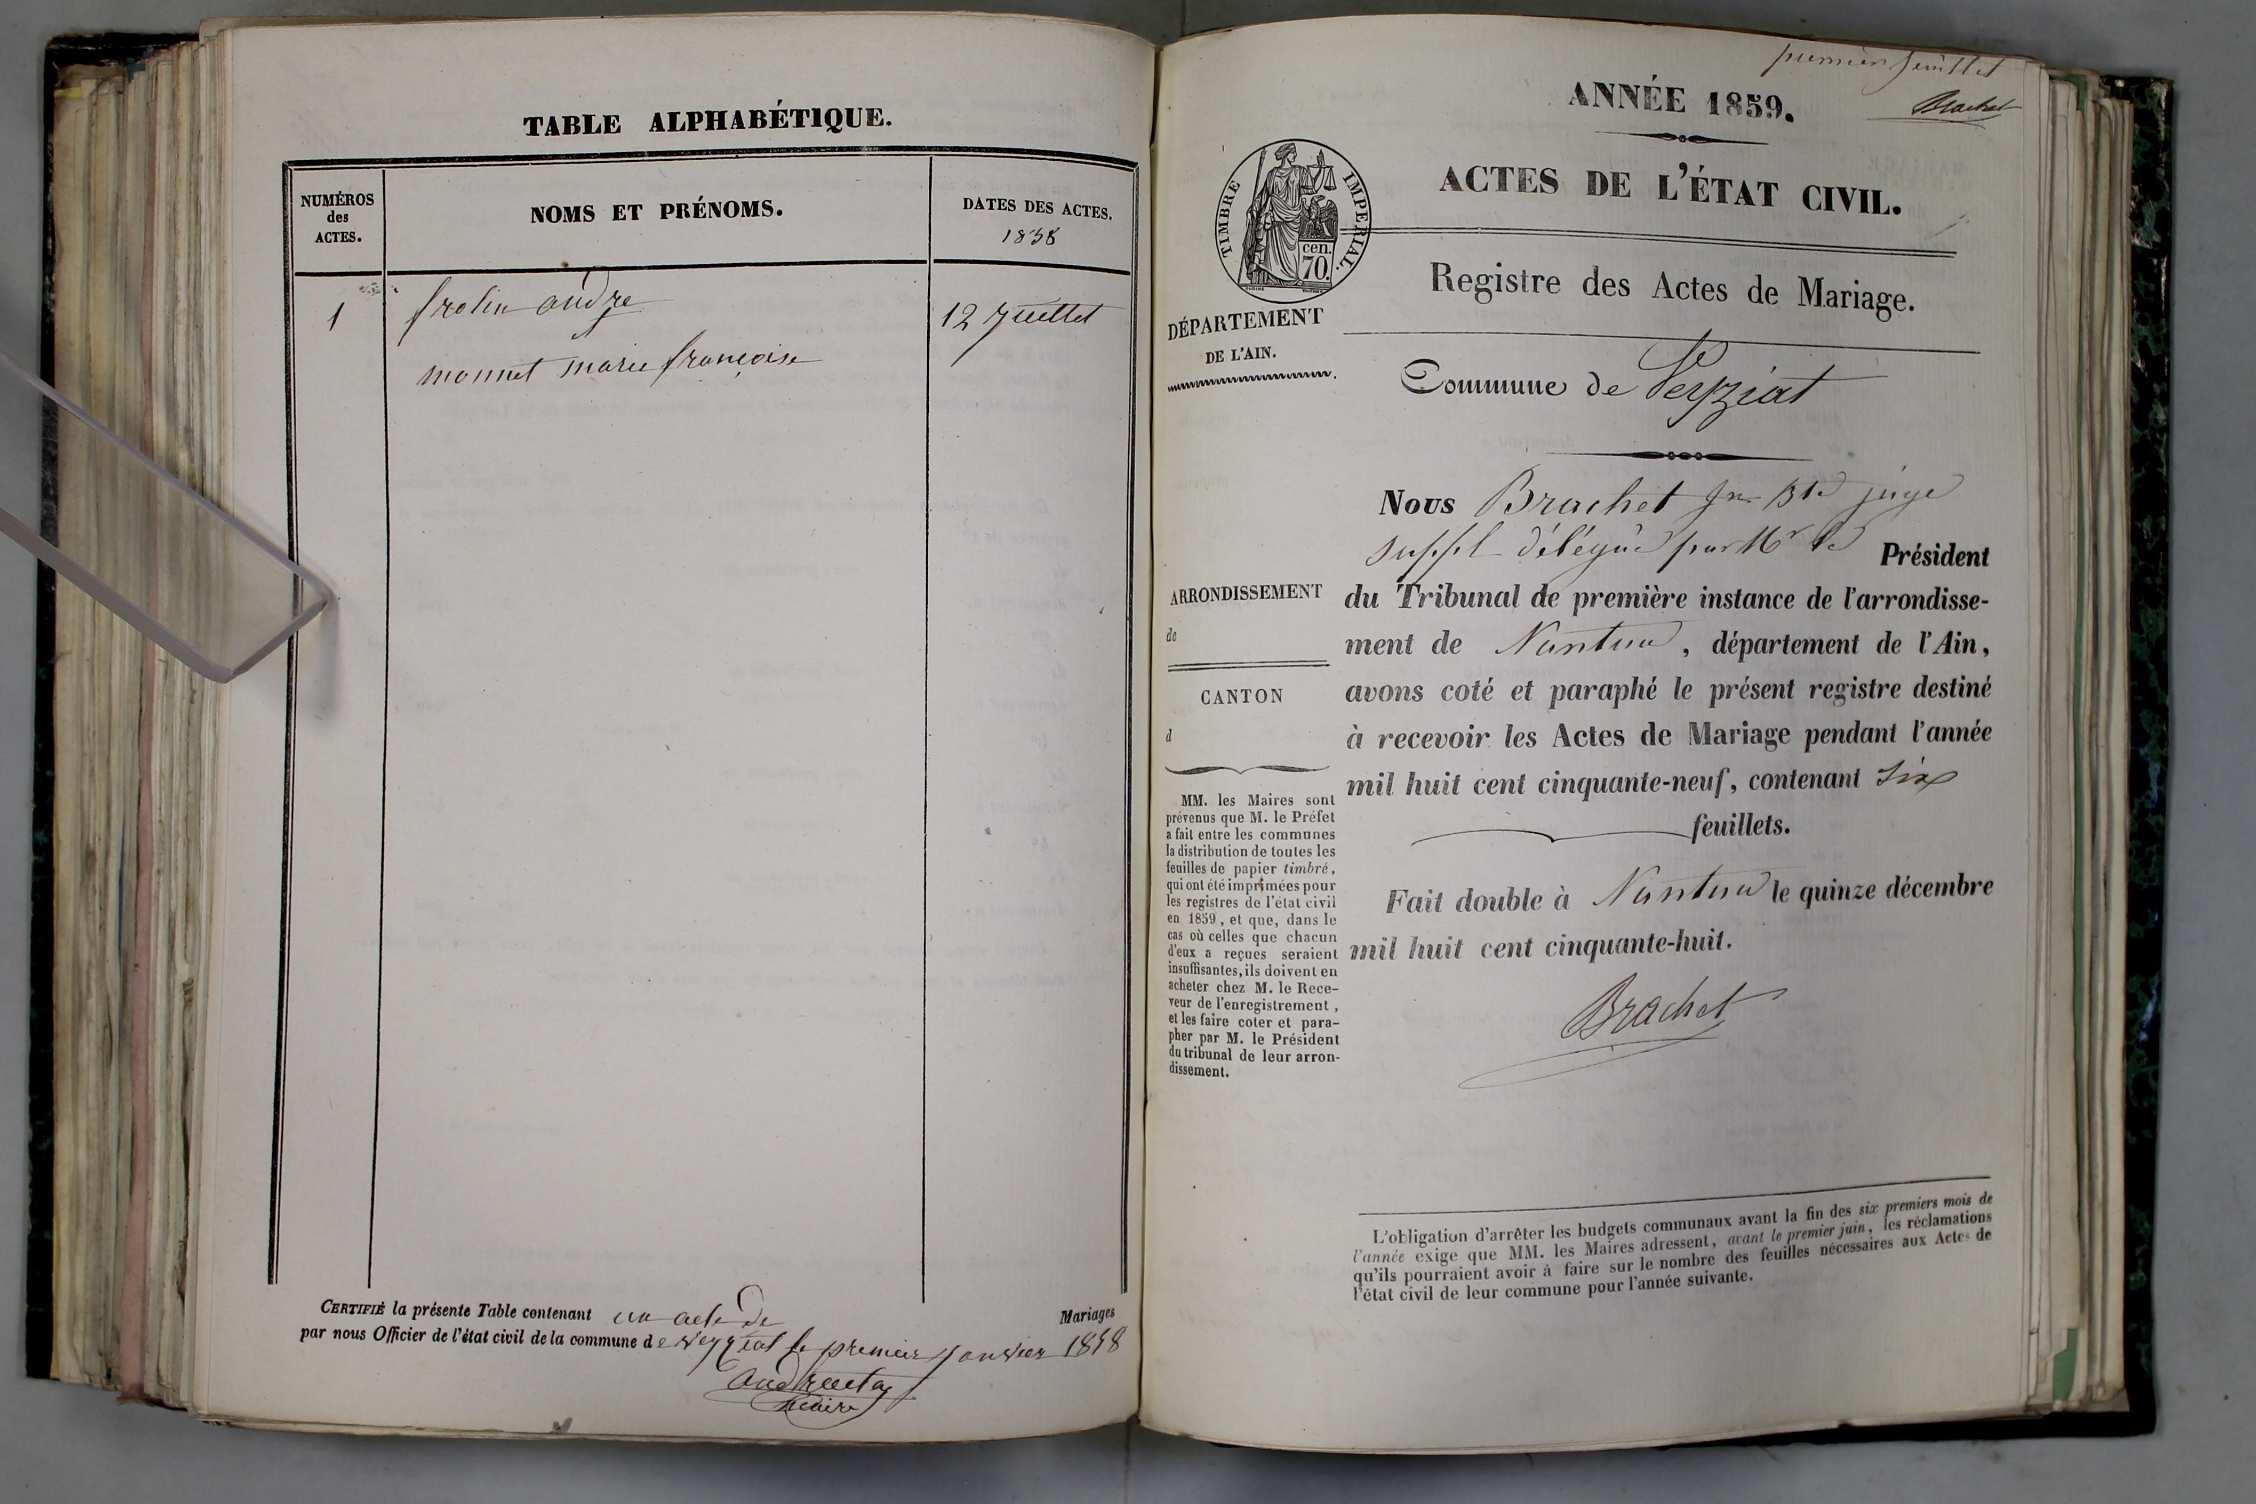 TABLE ALPHABÉTIQUE.
NUMÉROS
des
ACTES.
NOMS ET PRÉNOMS.
DATES DES ACTES.
1858
1
frolin andre
12 Juillet
monnet marie françoise
CERTIFIÉ la présente Table contenant un acte de Mariages
par nous Officier de l'état civil de la commune de veyziat le premier janvier 1858
maire
premier feuillet
Brachet
ANNÉE 1859.
ACTES DE L'ÉTAT CIVIL.
TIMBRE IMPERIAL.
cen.
70.
Registre des Actes de Mariage.
DÉPARTEMENT
DE L'AIN.
Commune de Veyziat
Nous Brachet juge
suppl délégué par Mr le Président
du Tribunal de première instance de l'arrondisse-
ment de Nantua, département de l'Ain,
avons coté et paraphé le présent registre destiné
à recevoir les Actes de Mariage pendant l'année
mil huit cent cinquante-neuf, contenant six
feuillets.
Fait double à Nantua le quinze décembre
mil huit cent cinquante-huit.
Brachet
ARRONDISSEMENT
de
CANTON
d
MM. les Maires sont
prévenus que M. le Préfet
a fait entre les communes
la distribution de toutes les
feuilles de papier timbré,
qui ont été imprimées pour
les registres de l'état civil
en 1859, et que, dans le
cas où celles que chacun
d'eux a reçues seraient
insuffisantes, ils doivent en
acheter chez M. le Rece-
veur de l'enregistrement,
et les faire coter et para-
pher par M. le Président
du tribunal de leur arron-
dissement.
L'obligation d'arrêter les budgets communaux avant la fin des six premiers mois de
l'année exige que MM. les Maires adressent, avant le premier juin, les réclamations
qu'ils pourraient avoir à faire sur le nombre des feuilles nécessaires aux Actes de
l'état civil de leur commune pour l'année suivante.